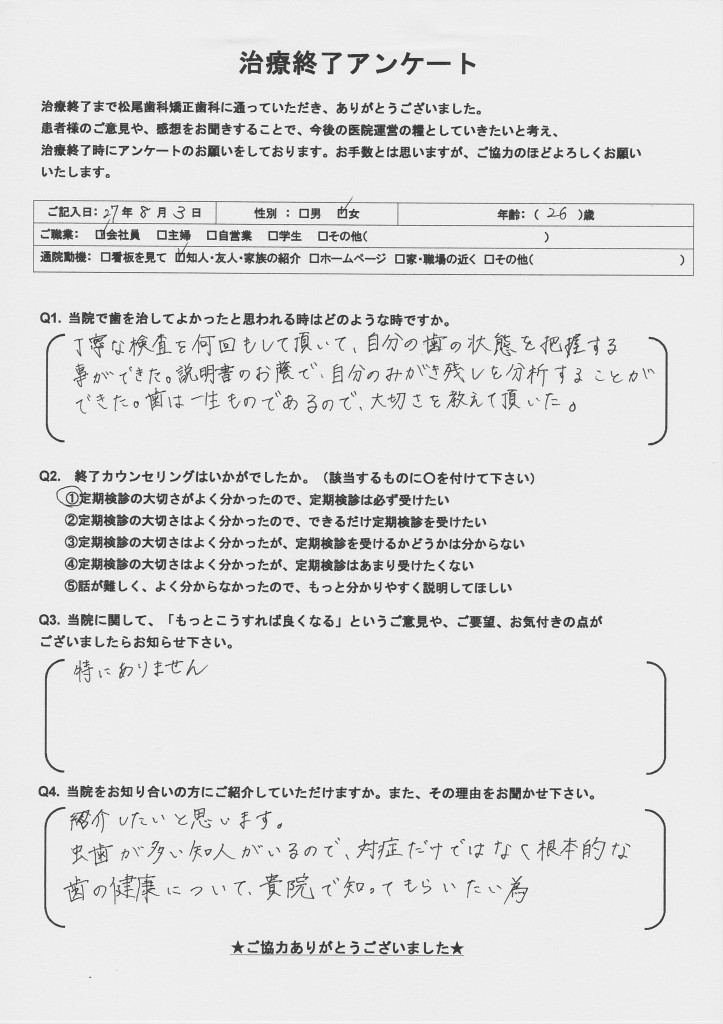 治療終了アンケート
治療終了まで松尾歯科矯正歯科に通っていただき、ありがとうございました。
患者様のご意見や、感想をお聞きすることで、今後の医院運営の糧としていきたいと考え、
治療終了時にアンケートのお願いをしております。お手数とは思いますが、ご協力のほどよろしくお願い
いたします。
ご記入日：27年 8月 3日 性別 ：□男 ☑女 年齢：（ 26 ）歳
ご職業： ☑会社員 □主婦 □自営業 □学生 □その他( )
通院動機：□看板を見て ☑知人・友人・家族の紹介 □ホームページ □家・職場の近く □その他( )
Q1. 当院で歯を治してよかったと思われる時はどのような時ですか。
丁寧な検査を何回もして頂いて、自分の歯の状態を把握する
事ができた。説明書のお蔭で、自分のみがき残しを分析することが
できた。歯は一生ものであるので、大切さを教えて頂いた。
Q2. 終了カウンセリングはいかがでしたか。（該当するものに〇を付けて下さい）
①定期検診の大切さがよく分かったので、定期検診は必ず受けたい
②定期検診の大切さはよく分かったので、できるだけ定期検診を受けたい
③定期検診の大切さはよく分かったが、定期検診を受けるかどうかは分からない
④定期検診の大切さはよく分かったが、定期検診はあまり受けたくない
⑤話が難しく、よく分からなかったので、もっと分かりやすく説明してほしい
Q3. 当院に関して、「もっとこうすれば良くなる」というご意見や、ご要望、お気付きの点が
ございましたらお知らせ下さい。
特にありません
Q4. 当院をお知り合いの方にご紹介していただけますか。また、その理由をお聞かせ下さい。
紹介したいと思います。
虫歯が多い知人がいるので、対症だけではなく根本的な
歯の健康について、貴院で知ってもらいたい為
★ご協力ありがとうございました★